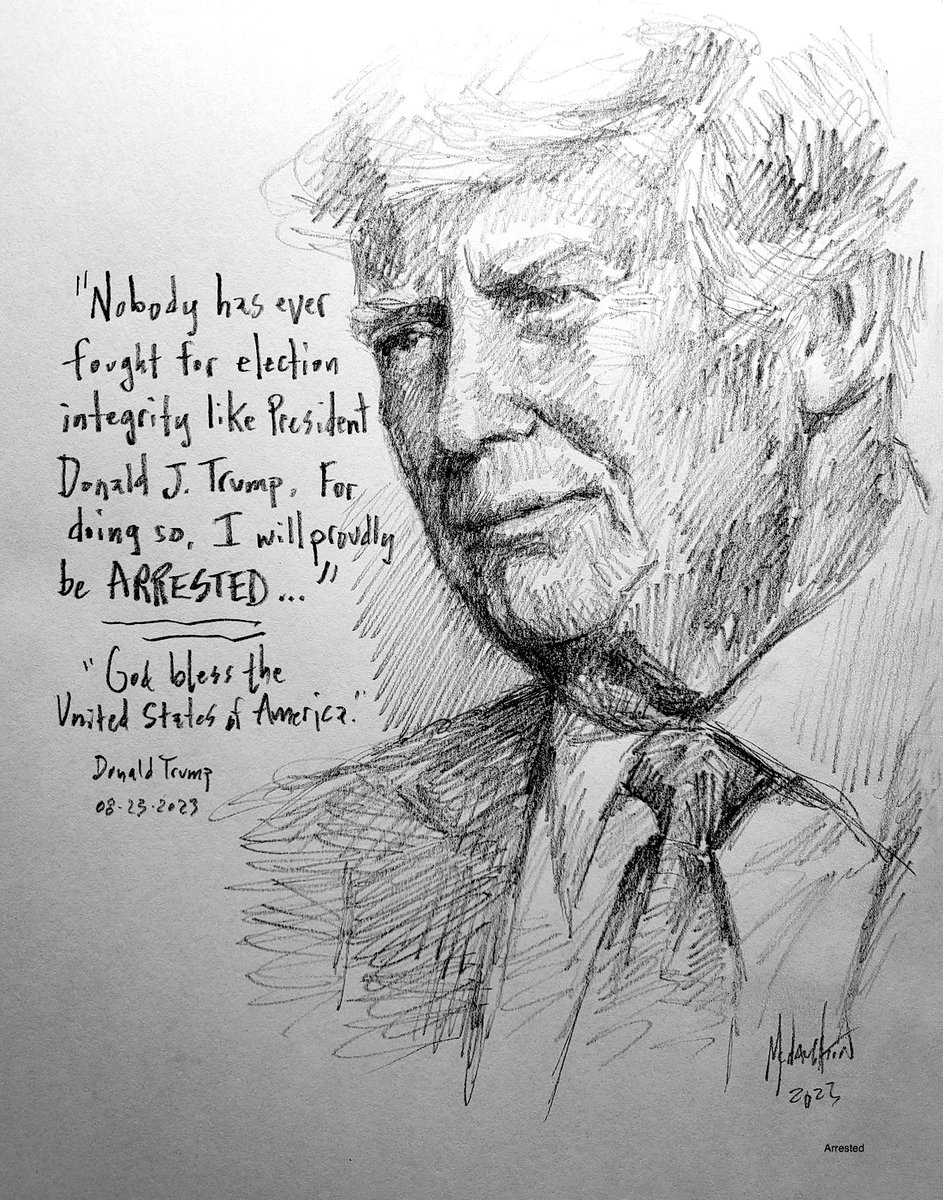 "Nobody has ever
fought for election
integrity like President
Donald J. Trump. For
doing so, I will proudly
be ARRESTED..."
"God bless the
United States of America."
Donald Trump
08-23-2023
2023
Arrested